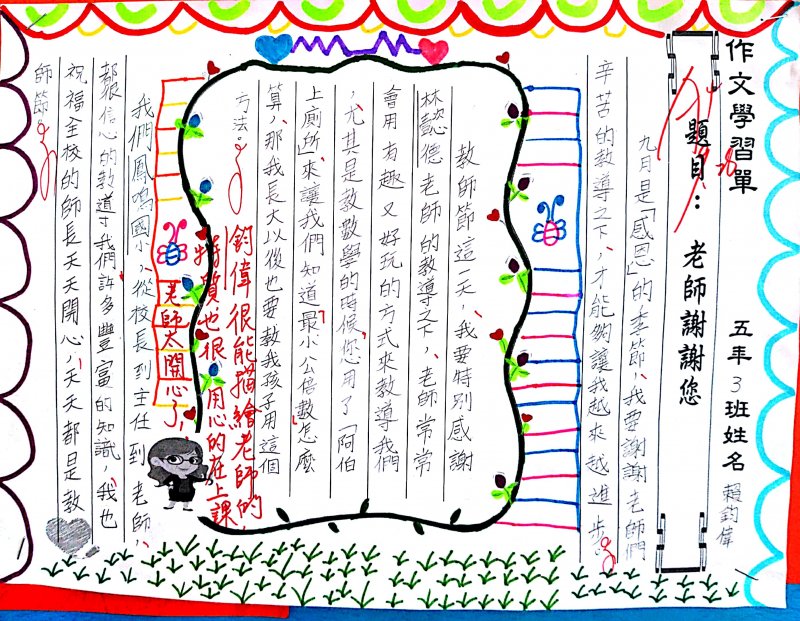 作文學習單
五年3班姓名 賴鈞偉
題目：老師謝謝您
九月是「感恩」的季節，我要謝謝老師們
辛苦的教導之下，才能夠讓我越來越進步。
教師節這一天，我要特別感謝
林懿德老師的教導之下，老師常常
會用有趣又好玩的方式來教導我們
，尤其是教數學的時候您用了「阿伯
上廁所」來讓我們知道最小公倍數怎麼
算，那我長大以後也要教我孩子用這個
方法。
鈞偉很能描繪老師的
特質也很用心的在上課
老師太開心了，
我們鳳鳴國小，從校長到主任到老師，
都很信心的教導，我們許多豐富的知識，我也
祝福全校的師長天天開心，天天都是教
師節。